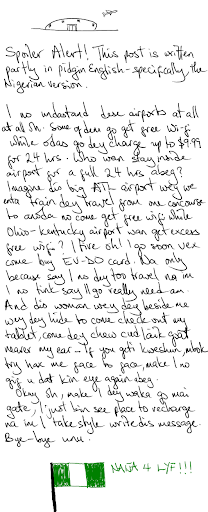 Spoiler Alert! This post is written
partly in pidgin English - specifically, the
Nigerian version.
I no undastand dese airports at all
at all sh. Some of dem go get free Wi-fi
while odas go dey charge up to $9.99
for 24 hrs. Who wan stay inside
airport for a full 24 hrs abeg?
Imagine dis big ATL airport wey we
enta train dey travel from one concourse
to anoda no come get free wifi while
Ohio-Kentucky airport wan get excess
free wifi? I five oh! I go soon vex
come buy EV-DO card. Na only
because say I no dey too travel, na im
I no tink say I go really need am.
And dis woman wey dey beside me
wey dey hide to come check out my
tablet, come dey chew cud laik goat
nearer my ear... If you geti kweshun mbok
try hax me face to face, make I no
give u dat kin eye again abeg.
Okay sh, make I dey waka go mai
gate, I just hin see place to recharge
na im I take style write dis message.
Bye-bye unu.
NAIJA 4 LYF!!!